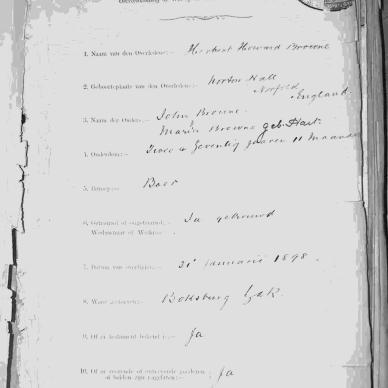 1. Naam van den Overledene:- Herbert Howard Browne
2. Geboorteplaats van den Overledene:- Norton Hall
Norfolk
England.
3. Naam der Ouders:- John Browne.
Maria Browne geb. Hart.
4. Ouderdom:- Twee en Zeventig jaaren 11 Maanden
5. Beroep:- Boer
6. Getrouwd of ongetrouwd,- Ja getrouwd
Weduwnaar of Weduwe
7. Datum van overlijden:- 21 Januarie 1898.
8. Waar overleden:- Boksburg Z.A.R.
9. Of er testament bestaat:- Ja
10. Of er roerende of onroerende goederen
of beiden zijn nagelaten:- Ja